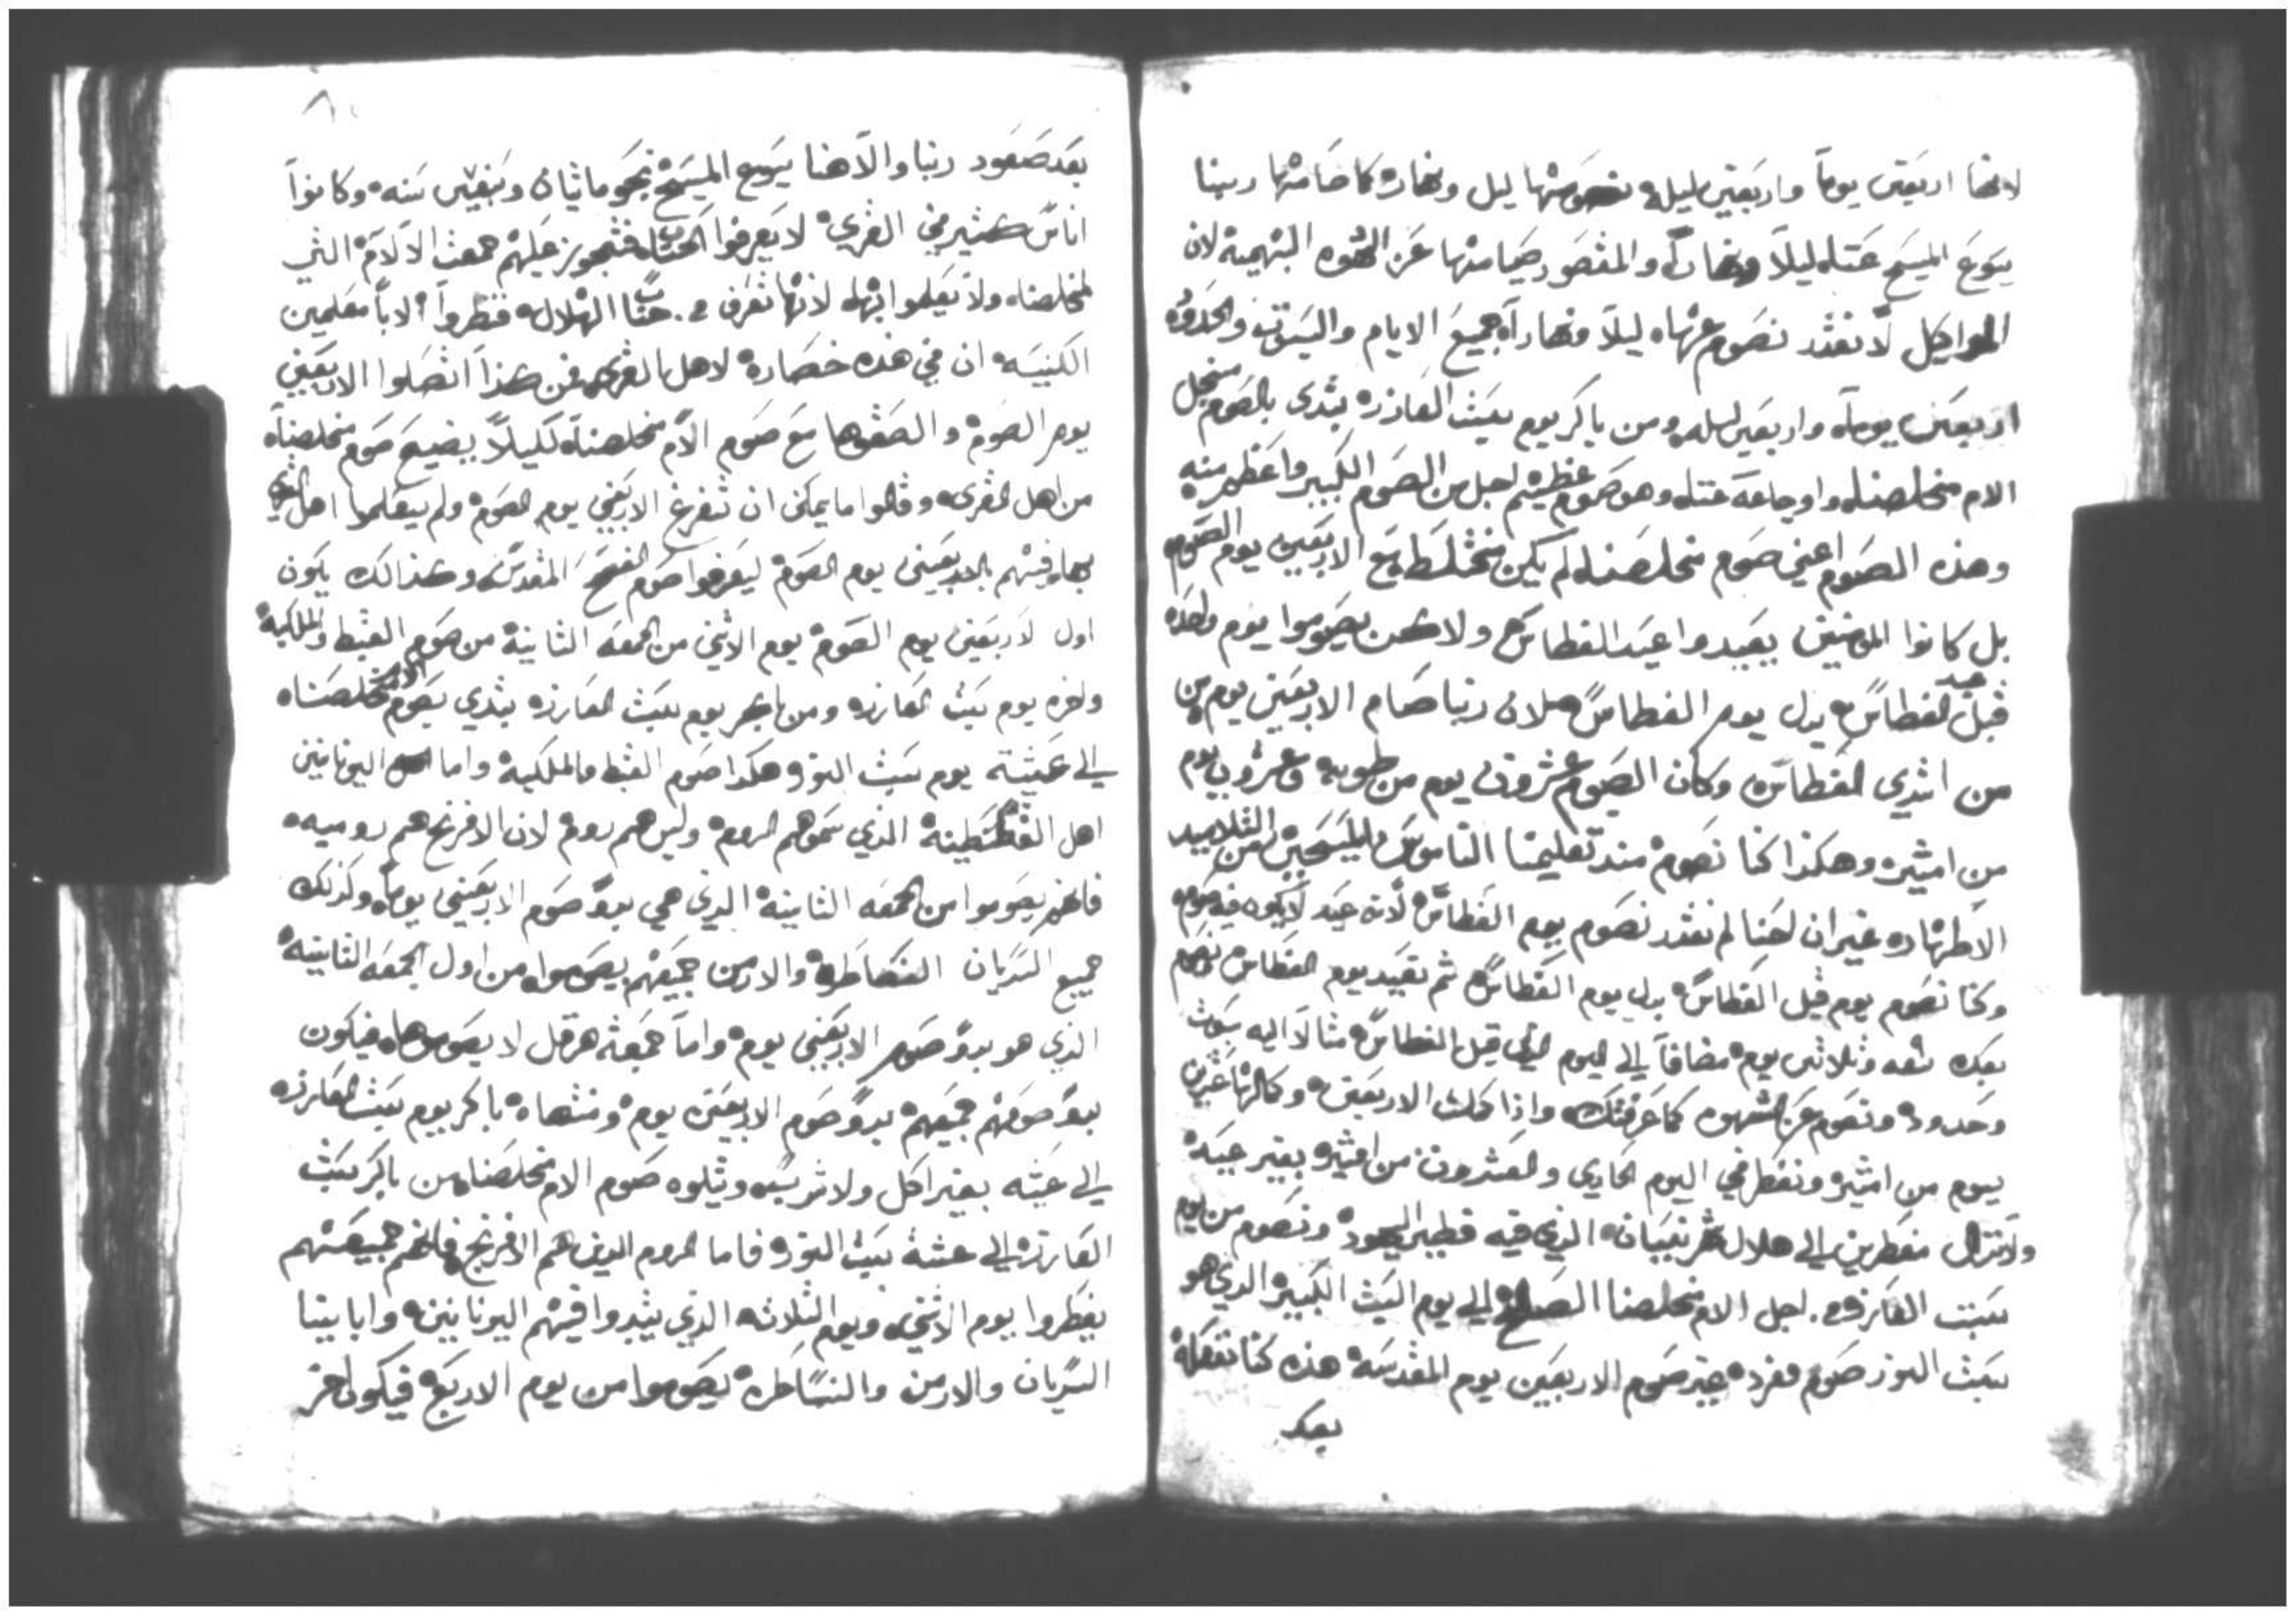 لانها اربعين يوماً واربعين ليله نصومها ليل ونهاره كما صامها ربنا
يسوع المسيح عنا ليلاً ونهاراً والمقصود صيامنها عن الشهوه البهيمية لان
المواكيل لا نقدر نصوم عنها ليلاً ونهاراً جميع الايام والسبوت والحدود
اربعين يوماً واربعين ليله ومن باكر يوم سبت العازره يبتدى بالصوم من اجل
الام مخلصنا واوجاعه عنا وهو صوم عظيم اجل من الصوم الكبير واعظم منه
وهذه الصوم اعني صوم مخلصنا لم يكن مختلط مع الاربعين يوم الصوم
بل كانوا المومنين يعيدوا عيد الغطاس ولاكن يصوموا يوم واحد
قبل عيد الغطاس بدل يوم الغطاس لان ربنا صام الاربعين يوم من
من ابتدي الغطاس وكان الصوم عشرون يوم من طوبه وعشرون يوم
من امشير وهكذا كنا نصوم منذ تعليمنا الناموس المسيحي من التلاميد
الاطهاره غير ان لحنا لم نقدر نصوم يوم الغطاس لانه عيد لا يكون فيه صوم
وكنا نصوم يوم قبل الغطاس بدل يوم الغطاس ثم نعيد يوم الغطاس ونصوم
بعده تسعه وثلاثين يوم مضافاً الي اليوم الذي قبل الغطاس مثالاً اليه سبوت
وحدود ونصوم عن الشهوه كما عرفتك واذا كملت الاربعين وكمالها عشرين
يوم من امشير ونفطر في اليوم الحادي والعشرون من امشير بغير عيد
ولا نزال مفطرين الي هلال شهر نيسان الذي فيه فطير اليهود ونصوم من يوم
سبت العازر. اجل الام مخلصنا الصالح الي يوم السبت الكبير الذي هو
سبت النور صوم مفرده غير صوم الاربعين يوم المقدسه هذه كنا نفعله
بعد
بعد صعود ربنا والاهنا يسوع المسيح نحو مايتان وسبعين سنه وكانوا
اناس كثير في القرى لا يعرفوا الحساب فتجوز عليهم جمعت الالام التي
لمخلصنا ولا يعلموا بها لانها تعرف من حساب الهلال فنظروا الابا معلمين
الكنيسه ان في هذه خصاره لاهل القرى فمن هذا اتصلوا الاربعين
يوم الصوم والصقوها مع صوم الام مخلصنا لكيلاً يضيع صوم مخلصنا
من اهل القرى وقالوا ما يمكن ان تفرغ الاربعين يوم الصوم ولم يعلموا اهل القرى
بمعرفتهم بالاربعين يوم الصوم ليعرفوا صوم الفسح المقدس وكذالك يكون
اول الاربعين يوم الصوم يوم الاثنين من الجمعه الثانية من صوم القبط والملكية
واخره يوم سبت العازره ومن باكر يوم سبت العازره يبتدي بصوم الام مخلصنا
الي عشية يوم سبت النور وهكدا صوم القبط والملكيه واما اليونانين
اهل القسطنطينة الذي سموهم الروم وليس هم روم لان الافرنج هم روميه
فانهم يصوموا من الجمعه الثانية الذي هي بدو صوم الاربعين يوماً وكذلك
جميع السريان النساطره والارمن جميعهم يصوموا من اول الجمعه الثانية
الذي هو بدو صوم الاربعين يوم واما جمعة هرقل لا يصوموها فيكون
بدو صومهم جميعهم بدو صوم الاربعين يوم ومنتهاه باكر يوم سبت العازره
الي عشيه بغير اكل ولا شرب ويتلوه صوم الام مخلصنا من باكر سبت
العازره الي عشية سبت النور فاما الروم الذين هم الافرنج فانهم جميعهم
يفطروا يوم الاثنين ويوم الثلاثه الذي يبتدوا فيهم اليونانين وابابيتنا
السريان والارمن والنساطره يصوموا من يوم الاربع فيكون اخر